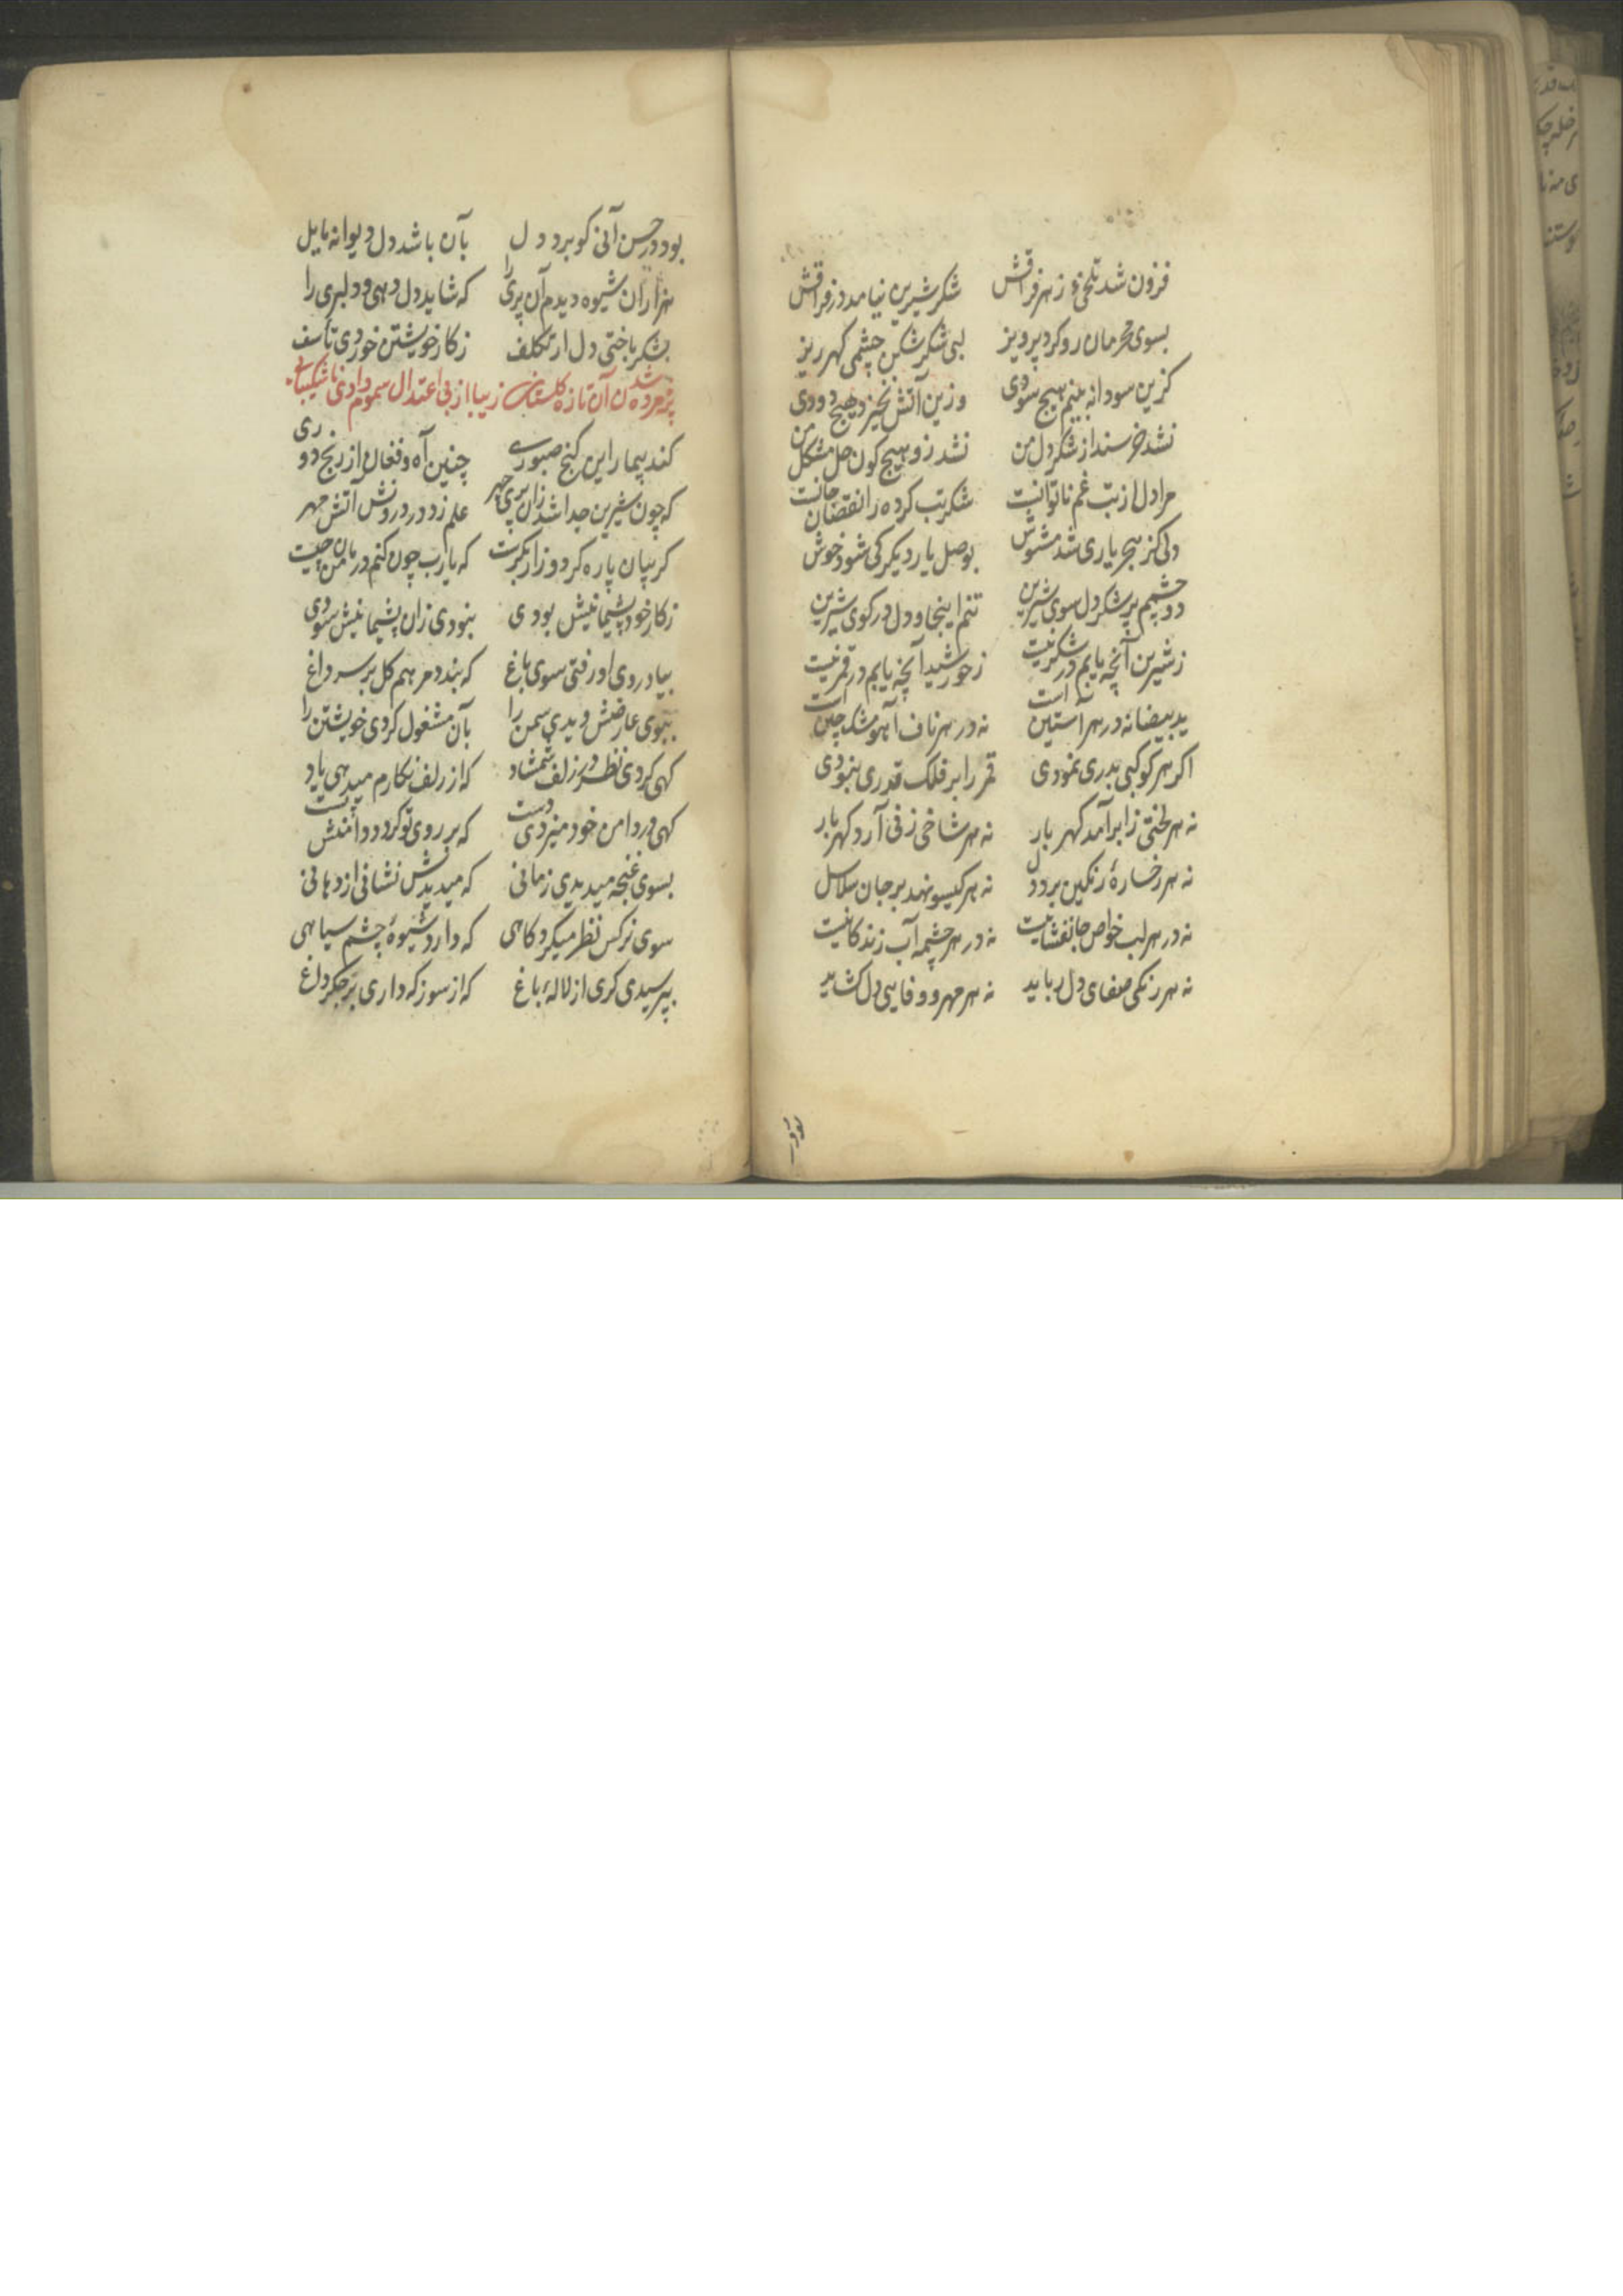 فزون شد تلخی زهر فراقش شکر شیرین نیامد در فراقش
بسوی محرمان رو کرد پرویز لبی شکر شکن چشمی کهر ریز
کزین سودا نه بینم هیچ سودی وزین آتش نخیزد هیچ دودی
نشد خرسند از شکر دل من نشد زو هیچکون حل مشکل من
مرا دل از تب غم ناتوانست شکر تب کرده را نقصان جانست
دلی کز هجر یاری شد مشوش بوصل یار دیکر کی شود خوش
دو چشمم بر شکر دل سوی شیرین تنم اینجا و دل در کوی شیرین
ز شیرین آنچه یابم در شکر نیست ز خورشید آنچه یابم در قمر نیست
ید بیضا نه در هر آستین است نه در هر ناف آهو مشک چین است
اکر هر کوکبی بدری نمودی قمر را بر فلک قدری نبودی
نه هر لختی ز ابر آمد کهر بار نه هر شاخی ز نی آرد کهر بار
نه هر رخسارهٔ رنکین برد دل نه هر کیسو نهد بر جان سلاسل
نه در هر لب خواص جانفشانیست نه در هر چشمه آب زندکانیست
نه هر رنکی صفای دل رباید نه هر مهر و وفایی دل کشاید
بود
بود در حسن آنی کو برد دل بآن باشد دل دیوانه مایل
هزاران شیوه دیدم آن پری را که شاید دل دهی و دلبری را
بشکر باختی دل از تکلف ز کار خویشتن خوردی تأسف
پژمرده شدن آن تازه کلستان زیبا از بی اعتدال سموم وادی ناشکیبایی
کند بیمار این کنج صبوری چنین آه و فغان از رنج دوری
که چون شیرین جدا شد زان پری چهر علم زد در درونش آتش مهر
کریبان پاره کرد و زار بکریست که یارب چون کنم درمان من چیست
ز کار خود پشیمانیش بودی نبودی زان پشیمانیش سودی
بیاد روی او رفتی سوی باغ که بندد مرهم کل بر سر داغ
ببوی عارضش دیدی سمن را بآن مشغول کردی خویشتن را
کهی کردی نظر در زلف شمشاد که از زلف نکارم میدهی یاد
کهی در دامن خود میزدی دست که بر روی تو کرد
بسوی غنچه میدیدی زمانی که میدیدش نشانی از دهانی
سوی نرکس نظر میکرد کاهی که دارد شیوهٔ چشم سیاهی
بپرسیدی کری از لالهٔ باغ که از سوز که داری بر جکر داغ